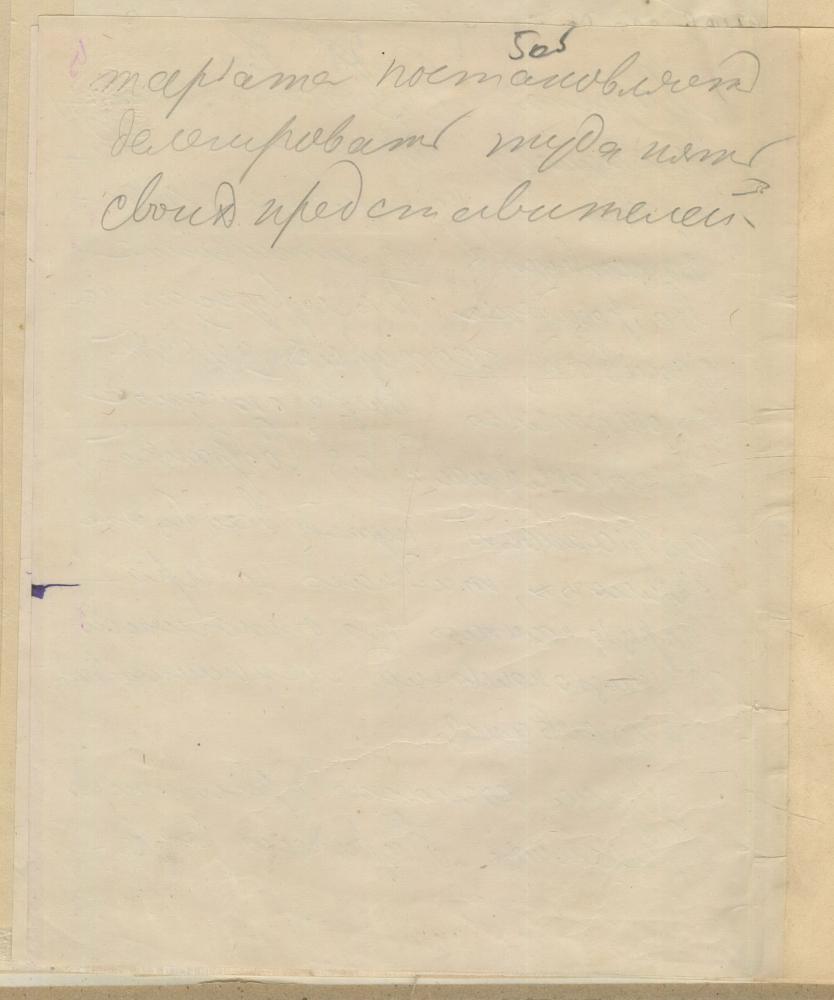 50б
тарiата постановляет
делегировать туда пять
своих представителей.